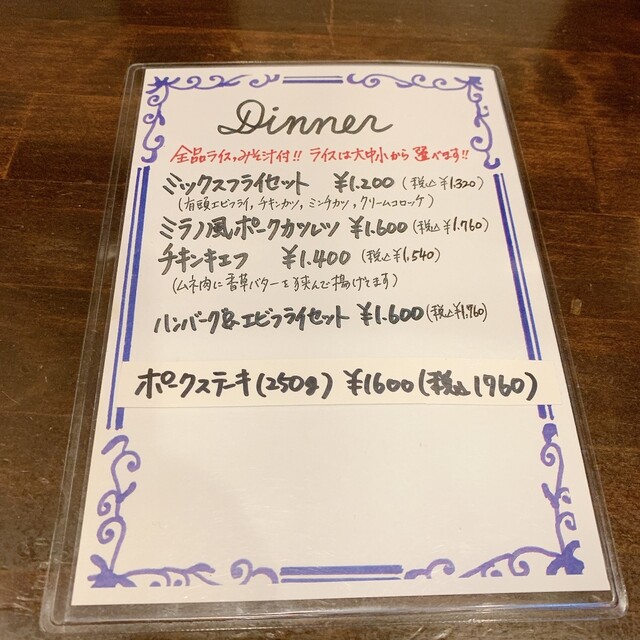 Dinner
全品ライス,みそ汁付!! ライスは大中小から選べます!!
ミックスフライセット ¥1.200 (税込¥1.320)
(有頭エビフライ, チキンカツ, ミンチカツ, クリームコロッケ)
ミラノ風ポークカツレツ ¥1.600 (税込¥1.760)
チキンキエフ ¥1.400 (税込¥1.540)
(ムネ肉に香草バターを挟んで揚げてます)
ハンバーグ&エビフライセット ¥1.600 (税込¥1.760)
ポークステーキ(250g) ¥1600(税込1760)